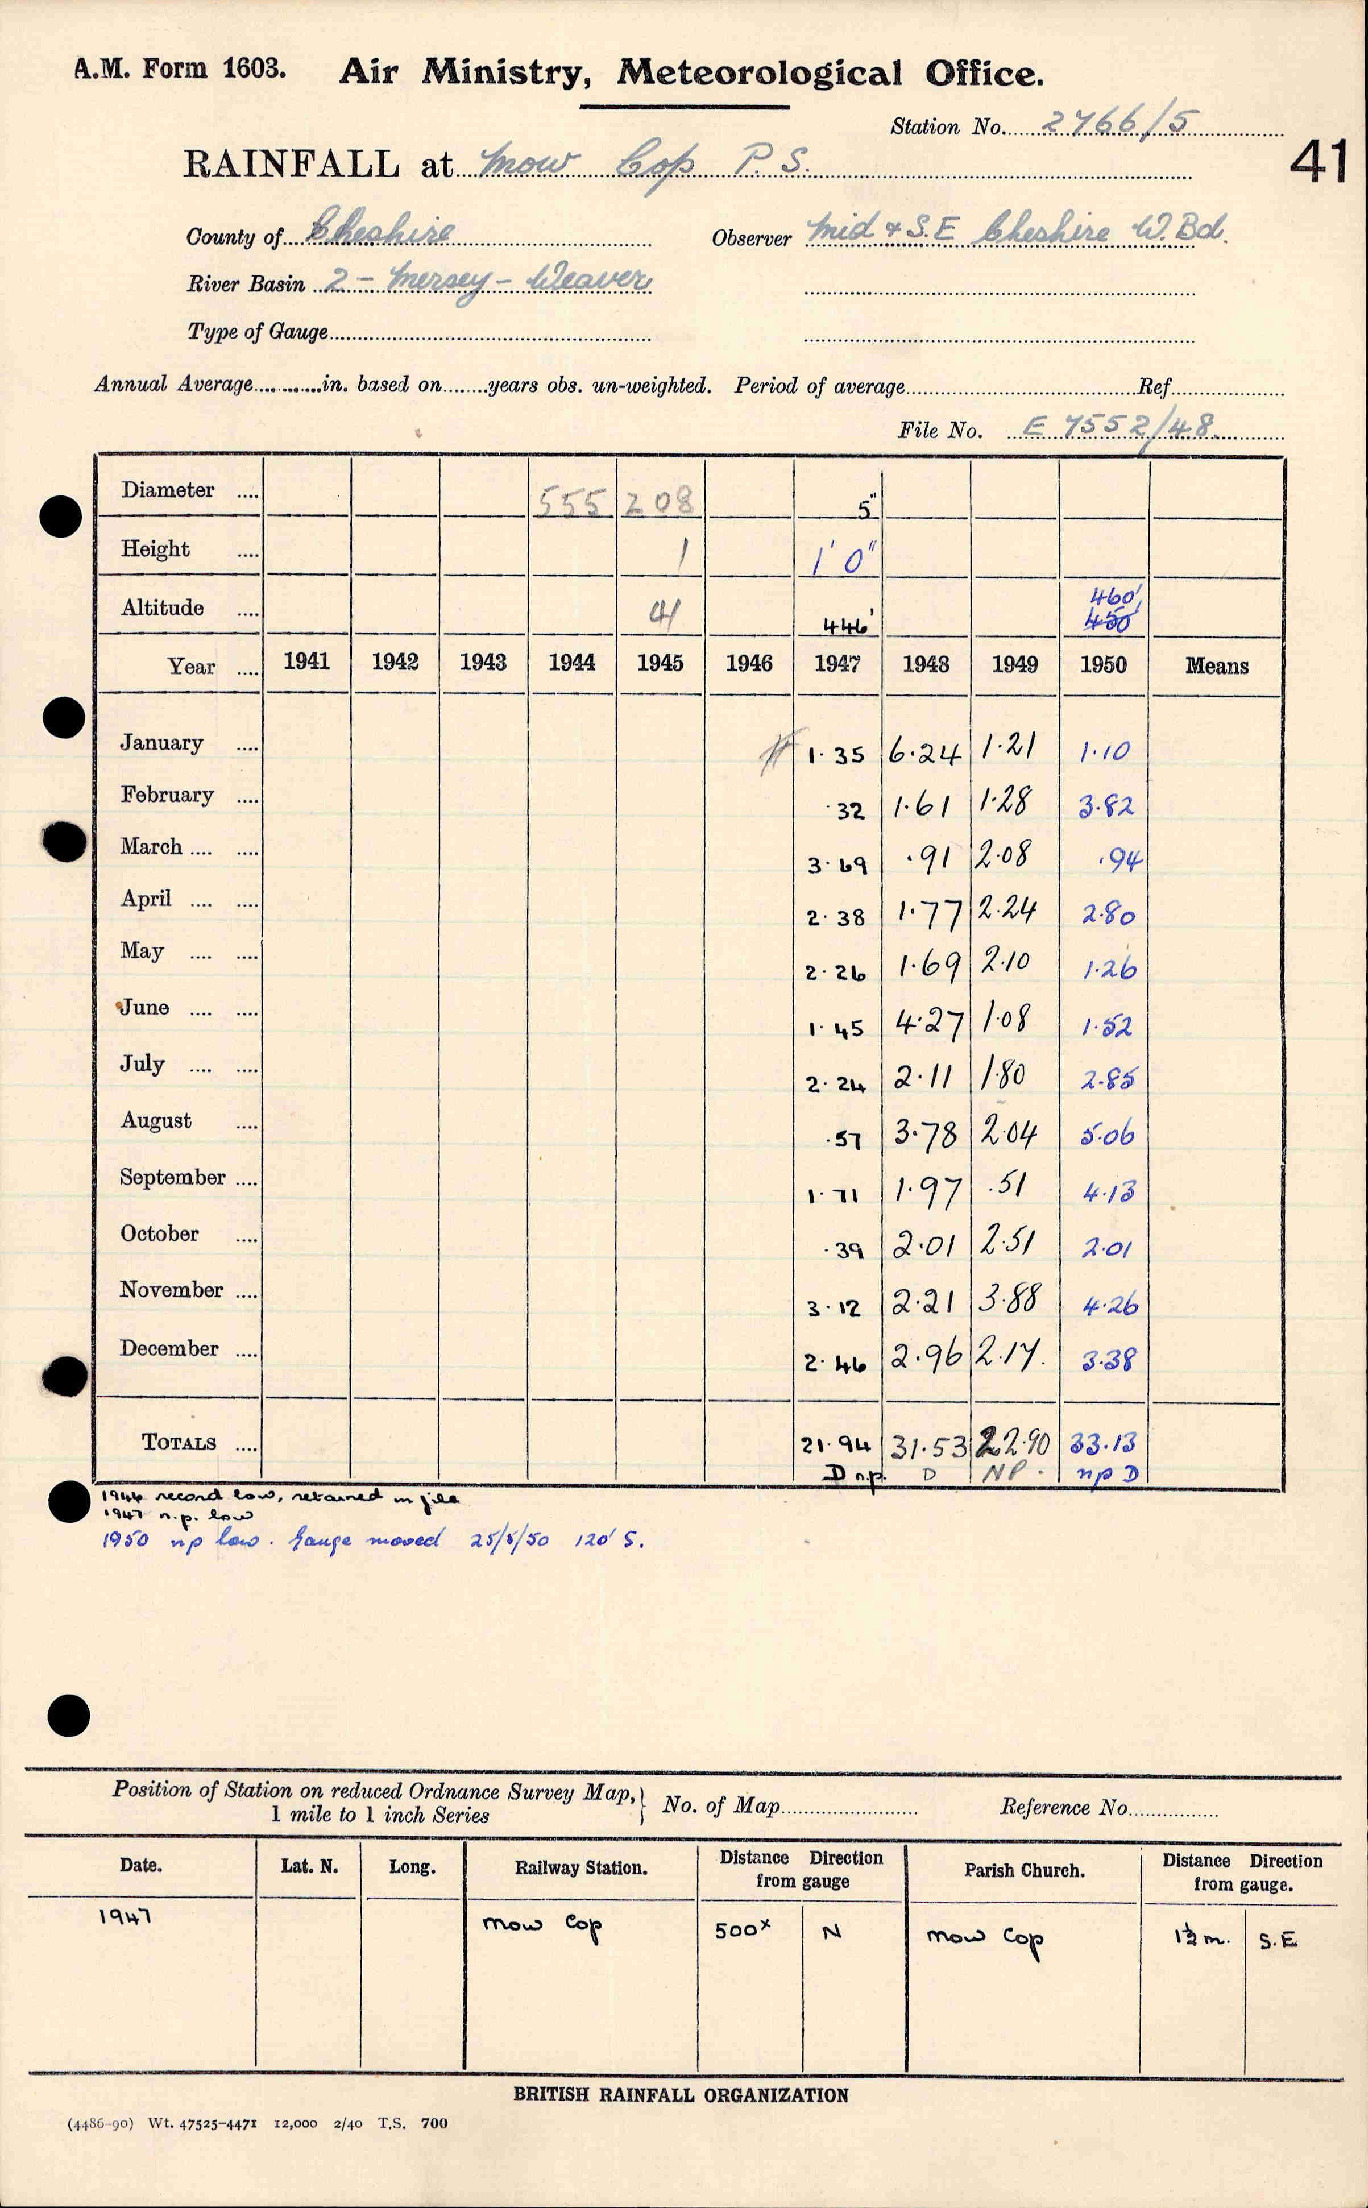 A.M. Form 1603. Air Ministry, Meteorological Office.
Station No. 2766/5
41
RAINFALL at Mow Cop P.S.
County of Cheshire Observer Mid & S.E Cheshire W.Bd.
River Basin 2 - Mersey - Weaver
Type of Gauge
Annual Average in. based on years obs. un-weighted. Period of average Ref
File No. E 7552/48
Diameter 555 208 5"
Height 1 1' 0"
Altitude 41 446' 460' 450'
Year 1941 1942 1943 1944 1945 1946 1947 1948 1949 1950 Means
January 1.35 6.24 1.21 1.10
February .32 1.61 1.28 3.82
March 3.69 .91 2.08 .94
April 2.38 1.77 2.24 2.80
May 2.26 1.69 2.10 1.26
June 1.45 4.27 1.08 1.52
July 2.24 2.11 1.80 2.85
August .57 3.78 2.04 5.06
September 1.71 1.97 .51 4.13
October .39 2.01 2.51 2.01
November 3.12 2.21 3.88 4.26
December 2.46 2.96 2.17 3.38
TOTALS 21.94 31.53 22.90 33.13
D n.p. D NP. np D
1946 record low, retained in file
1947 n.p. low
1950 np low. Gauge moved 25/5/50 120' S.
Position of Station on reduced Ordnance Survey Map, 1 mile to 1 inch Series } No. of Map Reference No.
Date. Lat. N. Long. Railway Station. Distance Direction from gauge Parish Church. Distance Direction from gauge.
1947 Mow Cop 500x N Mow Cop 1½ m. S.E
BRITISH RAINFALL ORGANIZATION
(4486-90) Wt. 47525-4471 12,000 2/40 T.S. 700